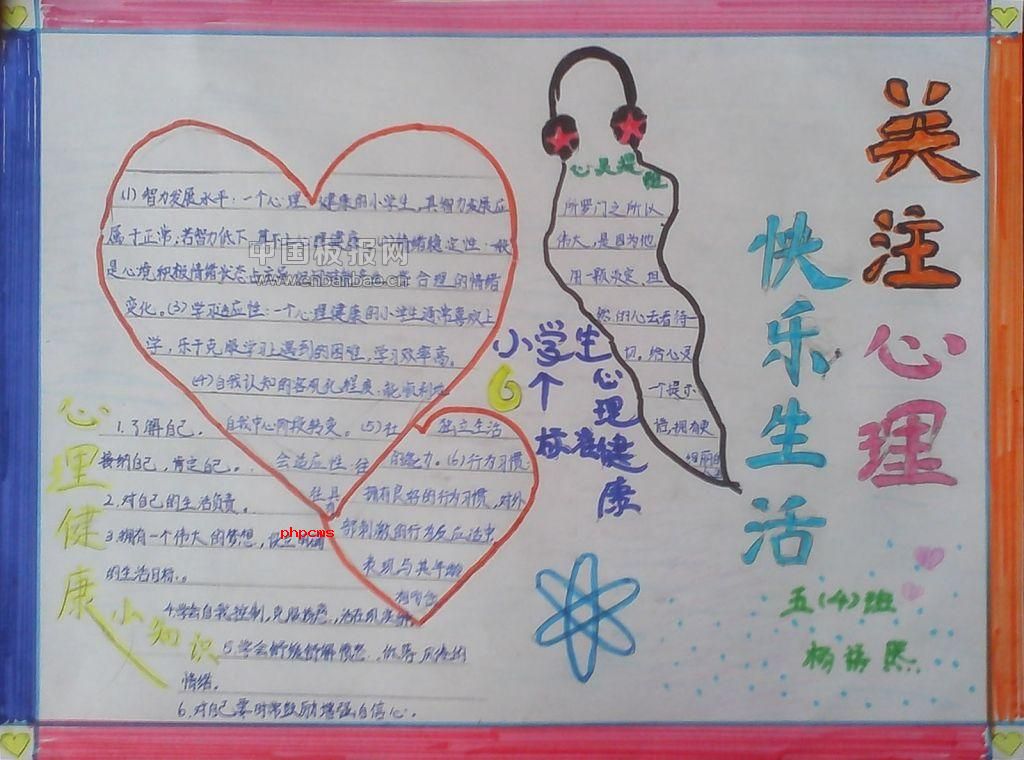 关注心理
快乐生活
五(4)班
心灵提醒
所罗门之所以
伟大,是因为他
用一颗淡定,坦
然的心去看待一
切。给心灵
一个提示
语,拥有更
小学生
6个
标准
心理健康
(1)智力发展水平:一个心理健康的小学生,其智力发展应
属于正常,若智力低下
是心境,积极情绪状态占
合理的情绪
变化。(3)学习适应性:一个心理健康的小学生通常喜欢上
学,乐于克服学习上遇到的困难,学习效率高。
(4)自我认知的客观化程度:能
自我中心阶段转变。(5)社
会适应性:往
往具
独立生活
的能力。(6)行为习惯:
拥有良好的行为习惯,对外
部刺激的行为反应适中,
表现与其年龄
心理健康小知识
1.了解自己,
接纳自己,肯定自己。
2.对自己的生活负责。
3.拥有一个伟大的梦想,设立明确
的生活目标。
4.学会自我控制,克服
5.学会舒缓
情绪。
6.对自己要时常鼓励增强自信心。
中国板报网
www.cnbanbao.cn
phpcms